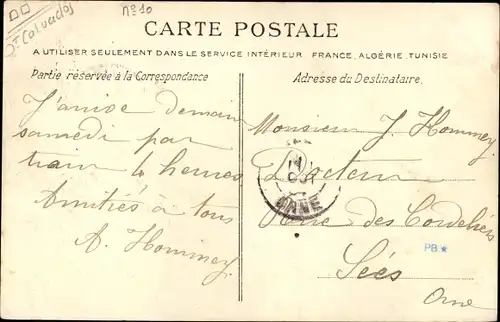 Dt Calvados
n° 10
CARTE POSTALE
A UTILISER SEULEMENT DANS LE SERVICE INTÉRIEUR FRANCE, ALGÉRIE, TUNISIE
Partie réservée à la Correspondance
J'arrive demain
samedi par
train 4 heures
Amitiés à tous
A. Hommey
Adresse du Destinataire.
Monsieur J. Hommey
Docteur
Rue des Cordeliers
Sées
Orne
ORNE
PB *